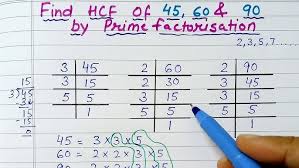 Find HCF Of 45, 60 & 90
by Prime factorisation
2, 3, 5, 7.....
3 | 45
3 | 15
5 | 5
1
2 | 60
2 | 30
3 | 15
5 | 5
1
2 | 90
3 | 45
3 | 15
5 | 5
1
15
3)45
15
-15
0
45 = 3 x 3 x 5
60 = 2 x 2 x 3 x 5